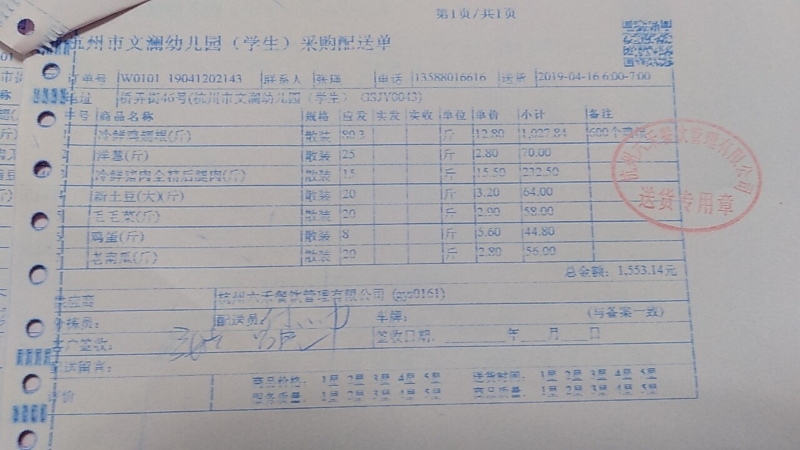 第1页/共1页
杭州市文澜幼儿园（学生）采购配送单
订单号 W0101 19041202143 联系人 张 电话 13588016616 送货 2019-04-16 6:00-7:00
地址 桥弄街46号(杭州市文澜幼儿园（学生）(GSJY0043)
号 商品名称 规格 应发 实发 实收 单位 单价 小计 备注
冷鲜鸡翅根(斤) 散装 80.3 斤 12.80 1,027.84 600个
洋葱(斤) 散装 25 斤 2.80 70.00
冷鲜猪肉全精后腿肉(斤) 散装 15 斤 15.50 232.50
新土豆(大)(斤) 散装 20 斤 3.20 64.00
毛毛菜(斤) 散装 20 斤 2.90 58.00
鸡蛋(斤) 散装 8 斤 5.60 44.80
老南瓜(斤) 散装 20 斤 2.80 56.00
总金额: 1,553.14元
供应商 杭州六禾餐饮管理有限公司 (gys0161)
分拣员: 配送员 车牌: (与备案一致)
客户签收: 签收日期: 年 月 日
配送留言:
商品价格: 1星 2星 3星 4星 5星 送货时间: 1星 2星 3星 4星 5星
评价 服务质量: 1星 2星 3星 4星 5星 商品质量: 1星 2星 3星 4星 5星
杭州六禾餐饮管理有限公司
送货专用章